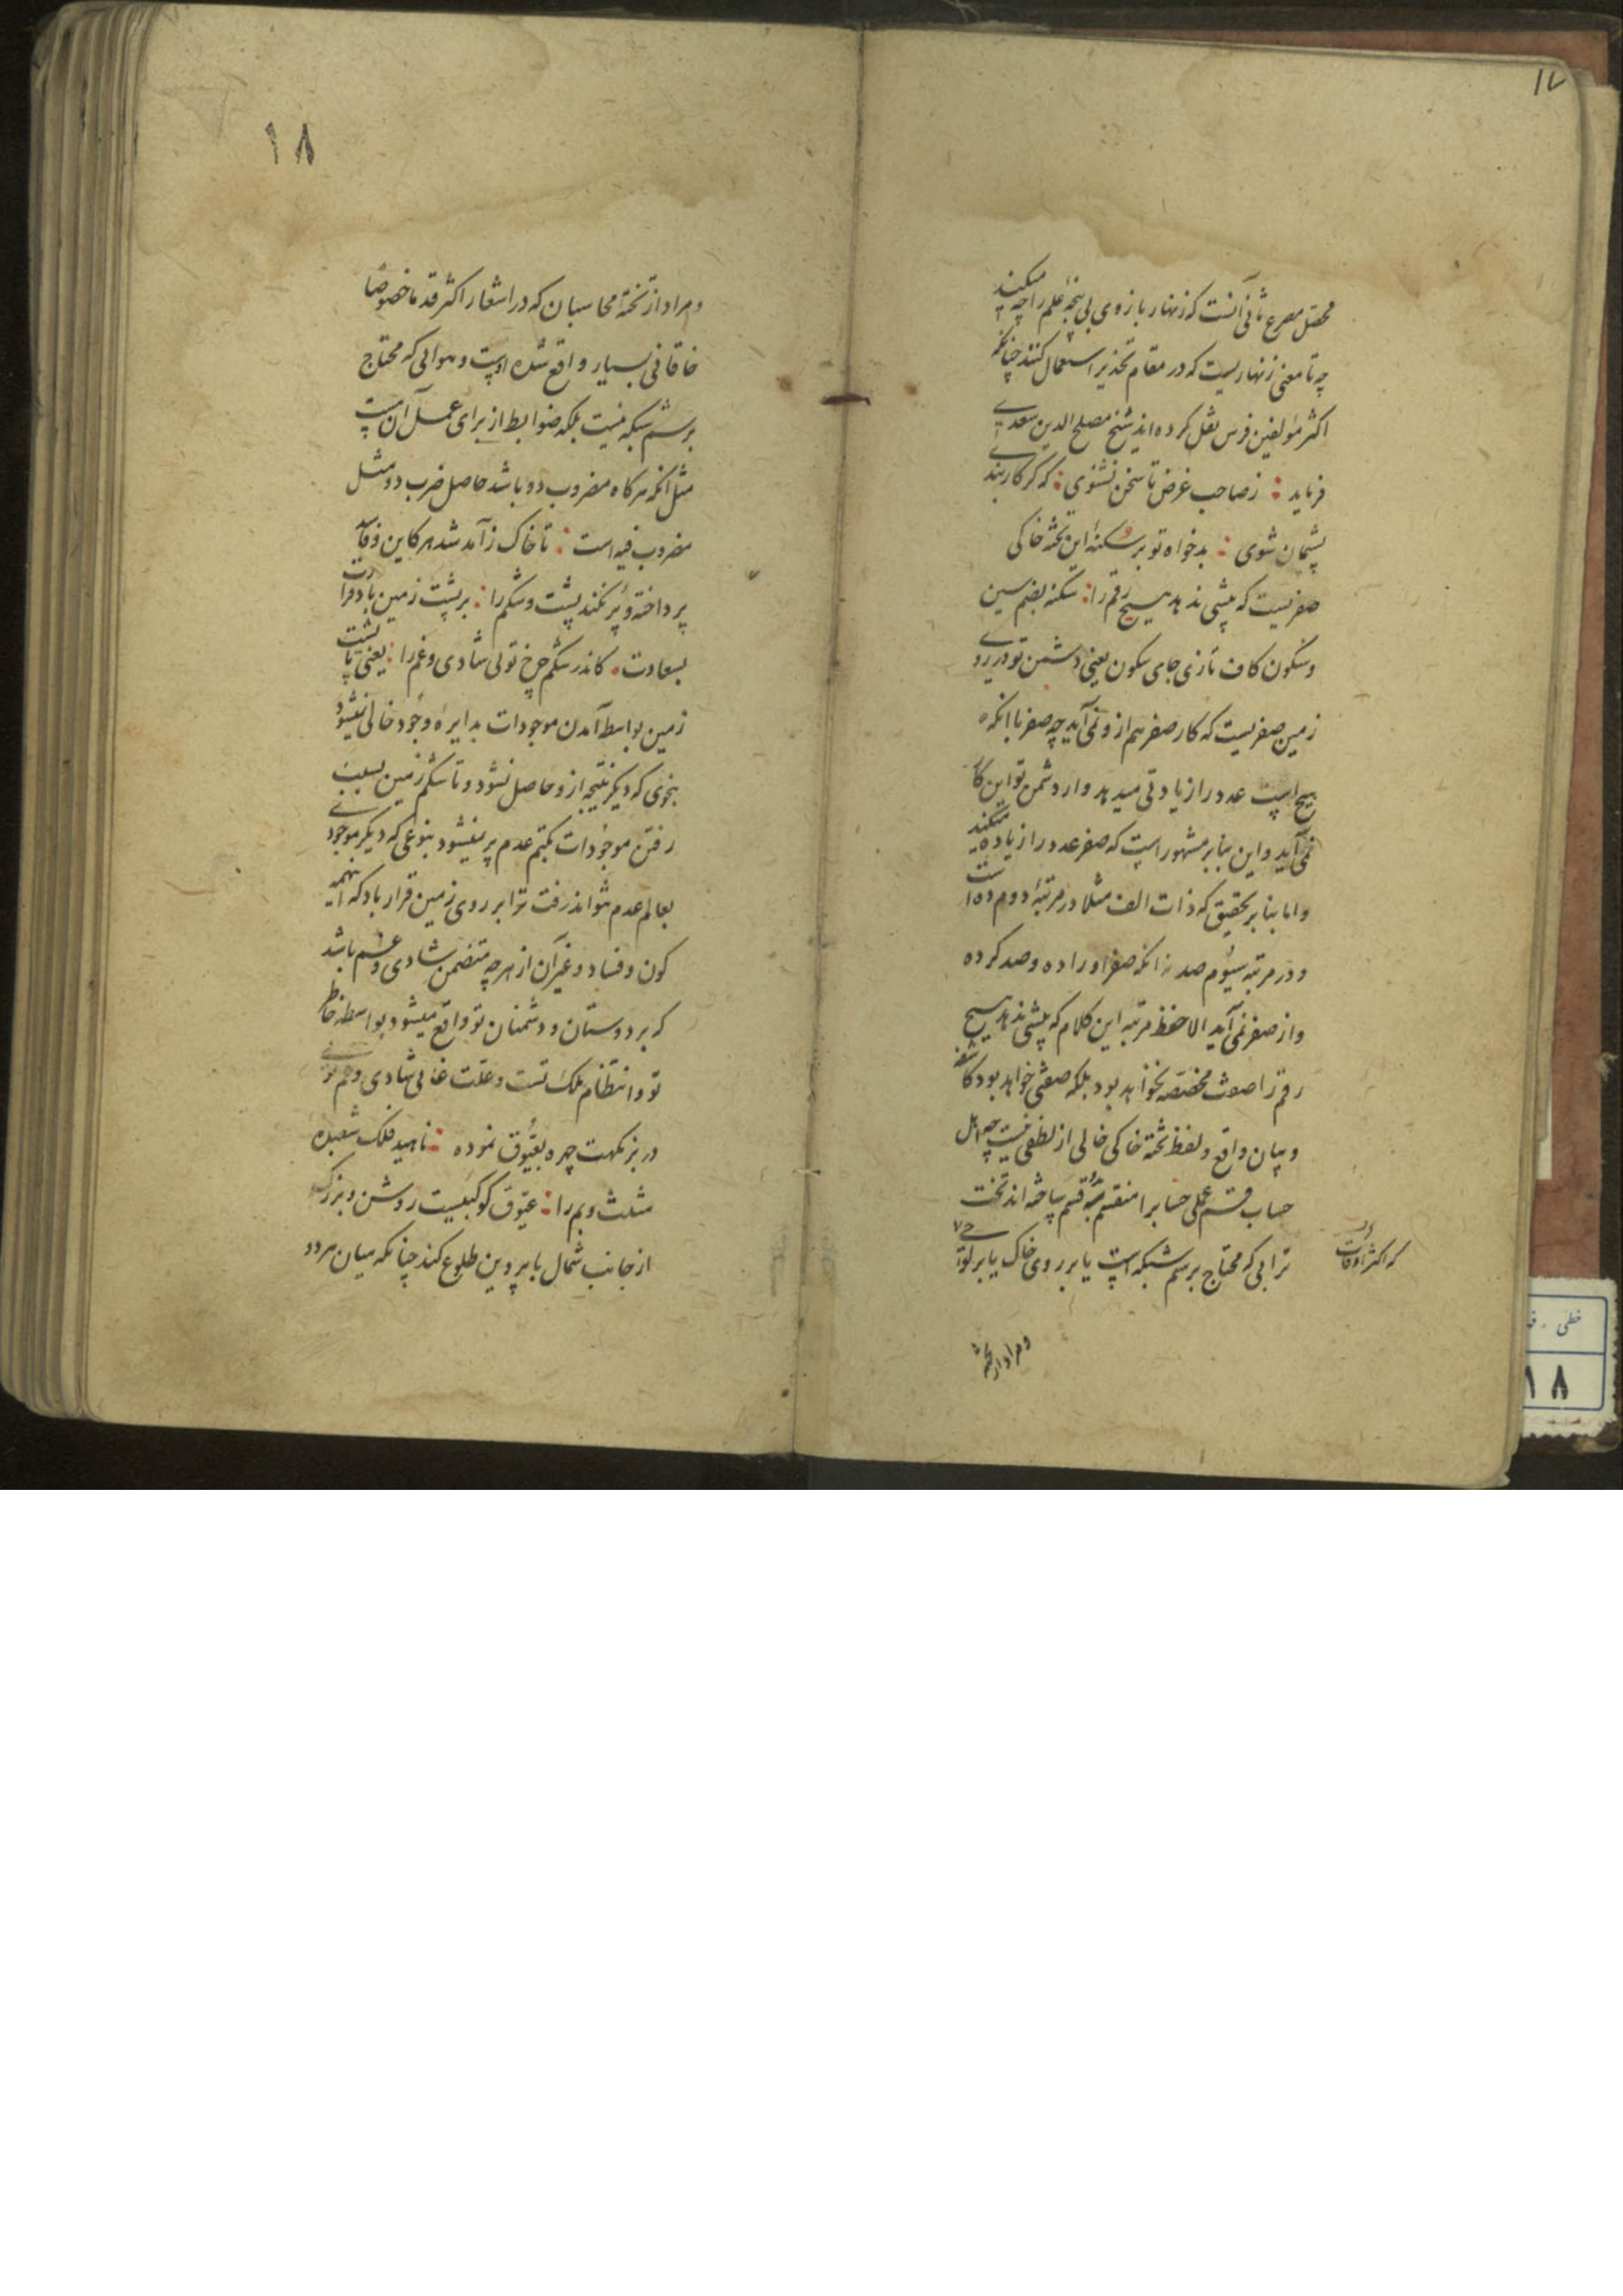 ۱۷
محصل مصرع ثانی آنست که زنهار بازوی بی پنجهٔ علم را چه میکنید
چه تا معنی زنهاریست که در مقام تحذیر استعمال کنند چنانکه
اکثر مؤلفین فرس نقل کرده اند شیخ مصلح الدین سعدی
فرماید : ز صاحب غرض تا سخن نشنوی : که گر کار بندی
پشیمان شوی : بدخواه تو بر سکنهٔ این تختهٔ خاکی
صفریست که بیشی ندهد هیچ رقم را : سکنه بضم سین
و سکون کاف تازی جای سکون یعنی دشمن تو در روی
زمین صفریست که کار صفر هم از و نمی آید چه صفر با انکه
هیچ است عدد را زیادتی میدهد و از دشمن تو این کار
نمی آید و این بنابر مشهور است که صفر عدد را زیاده میکند
و اما بنابر تحقیق که ذات الف مثلا در مرتبهٔ دوم ده است
و در مرتبه سیوم صد نه انکه صفر او را ده و صد کرده
و از صفر نمی آید الا حفظ مرتبه این کلام که بیشی ندهد هیچ
رقم را صفت مخصصه نخواهد بود بلکه صفتی خواهد بود کاشفه
و بیان واقع و لفظ تختهٔ خاکی خالی از لطفی نیست چه اهل
حساب قسم عملی حساب را منقسم بدو قسم ساخته اند تخت
ترابی که محتاج برسم شبکه است یا بر روی خاک یا بر لوحی
که اکثر اوقات
و مراد از تخته
۱۸
و مراد از تختهٔ محاسبان که در اشعار اکثر قدما خصوصا
خاقانی بسیار واقع شده اوست و هوائی که محتاج
برسم شبکه نیست بلکه ضوابط از برای عمل آن هست
مثل انکه هرکاه مضروب دو باشد حاصل ضرب دو مثل
مضروب فیه است : تا خاک ز آمد شد هر کاین و فاسد
پرداخته و پر نکند پشت و شکم را : بر پشت زمین باد قرارت
بسعادت : کاندر شکم چرخ توئی شادی و غم را : یعنی تا پشت
زمین بواسطه آمدن موجودات بدایرهٔ وجود خالی نمیشود
بنحوی که دیگر نتیجه از و حاصل نشود و تا شکم زمین بسبب
رفتن موجودات بکتم عدم پر نمیشود بنوعی که دیگر موجودی
بعالم عدم نتواند رفت ترا بر روی زمین قرار باد که اینهمه
کون و فساد و غیر آن از هر چه متضمن شادی و غم باشد
که بر دوستان و دشمنان تو واقع میشود بواسطه خاطر
تو و انتظام ملک تست و علت غائی شادی و غم توئی
در بزمگهت چهره بعیوق نموده : ناهید فلک شعبدهٔ
مثلث و بم را : عیوق کوکبیست روشن و بزرگ
از جانب شمال با پروین طلوع کند چنانکه میان هر دو
خطی
۱۸